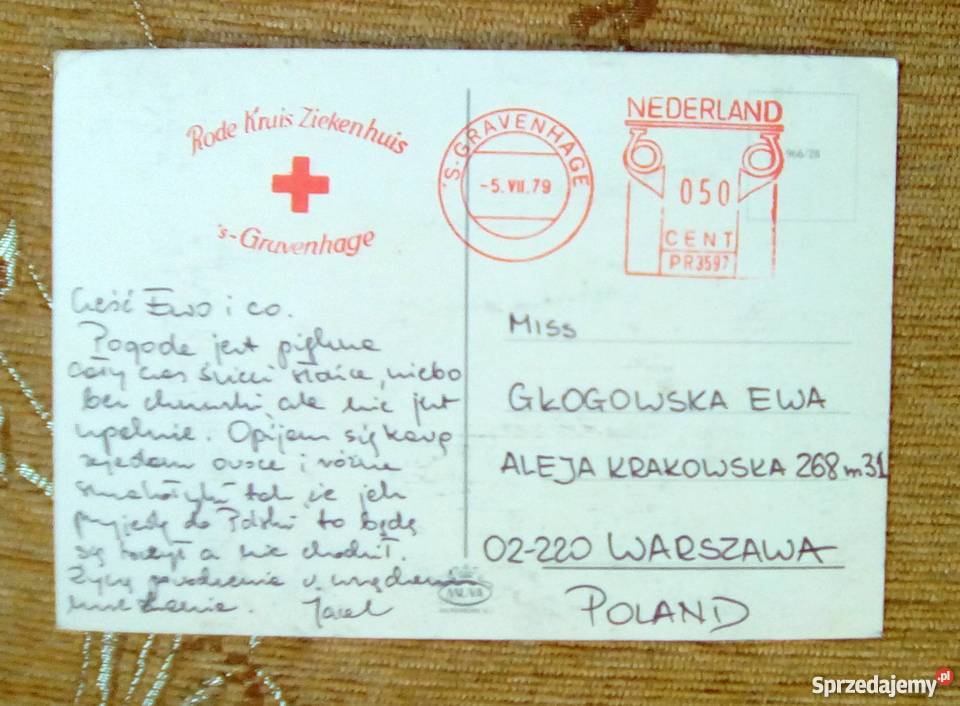 Rode Kruis Ziekenhuis
's-Gravenhage
'S-GRAVENHAGE
-5.VII.79
NEDERLAND
050
CENT
PR3597
966/28
Cześć Ewo i co.
Pogoda jest piękna
cały czas świeci słońce, niebo
bez chmurki, ale nie jest
upalnie. Opijam się kawą
zajadam owoce i różne
smakołyki tak że jak
przyjadę do Polski to będę
się toczył a nie chodził.
Życzę powodzenia w
Jacek
Miss
GŁOGOWSKA EWA
ALEJA KRAKOWSKA 268 m 31
02-220 WARSZAWA
POLAND
MUVA
Sprzedajemy.pl